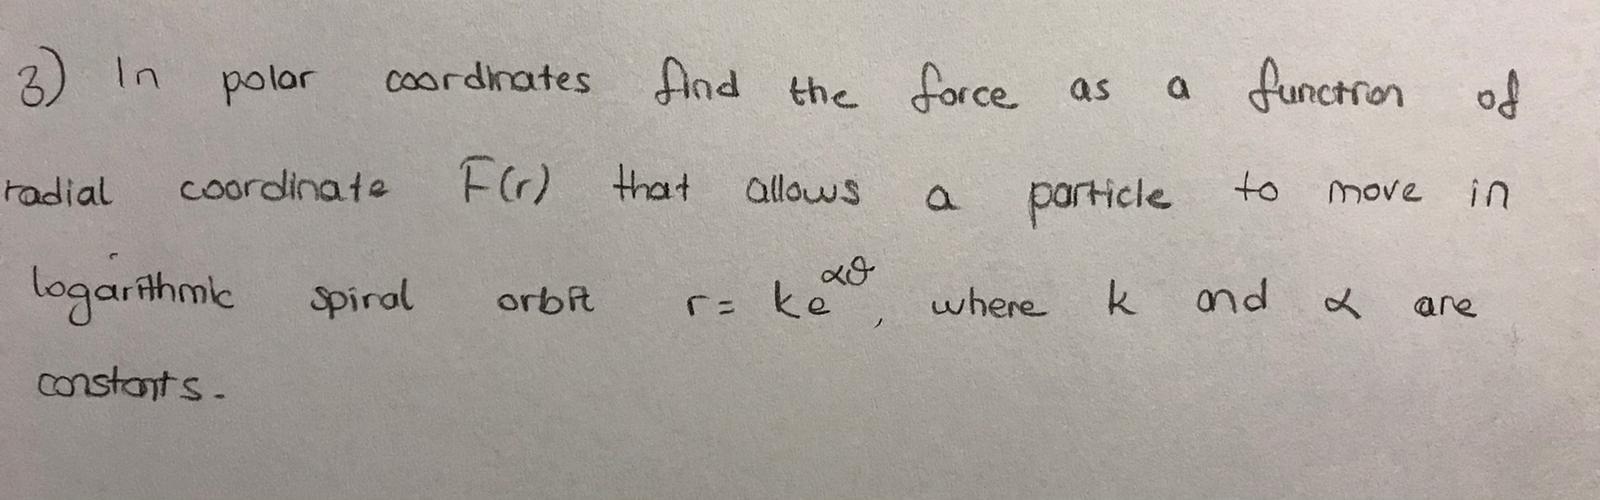 3) In polar coordinates find the force as a function of
radial coordinate F(r) that allows a particle to move in
logarithmic spiral orbit r = ke^αθ, where k and α are
constants.